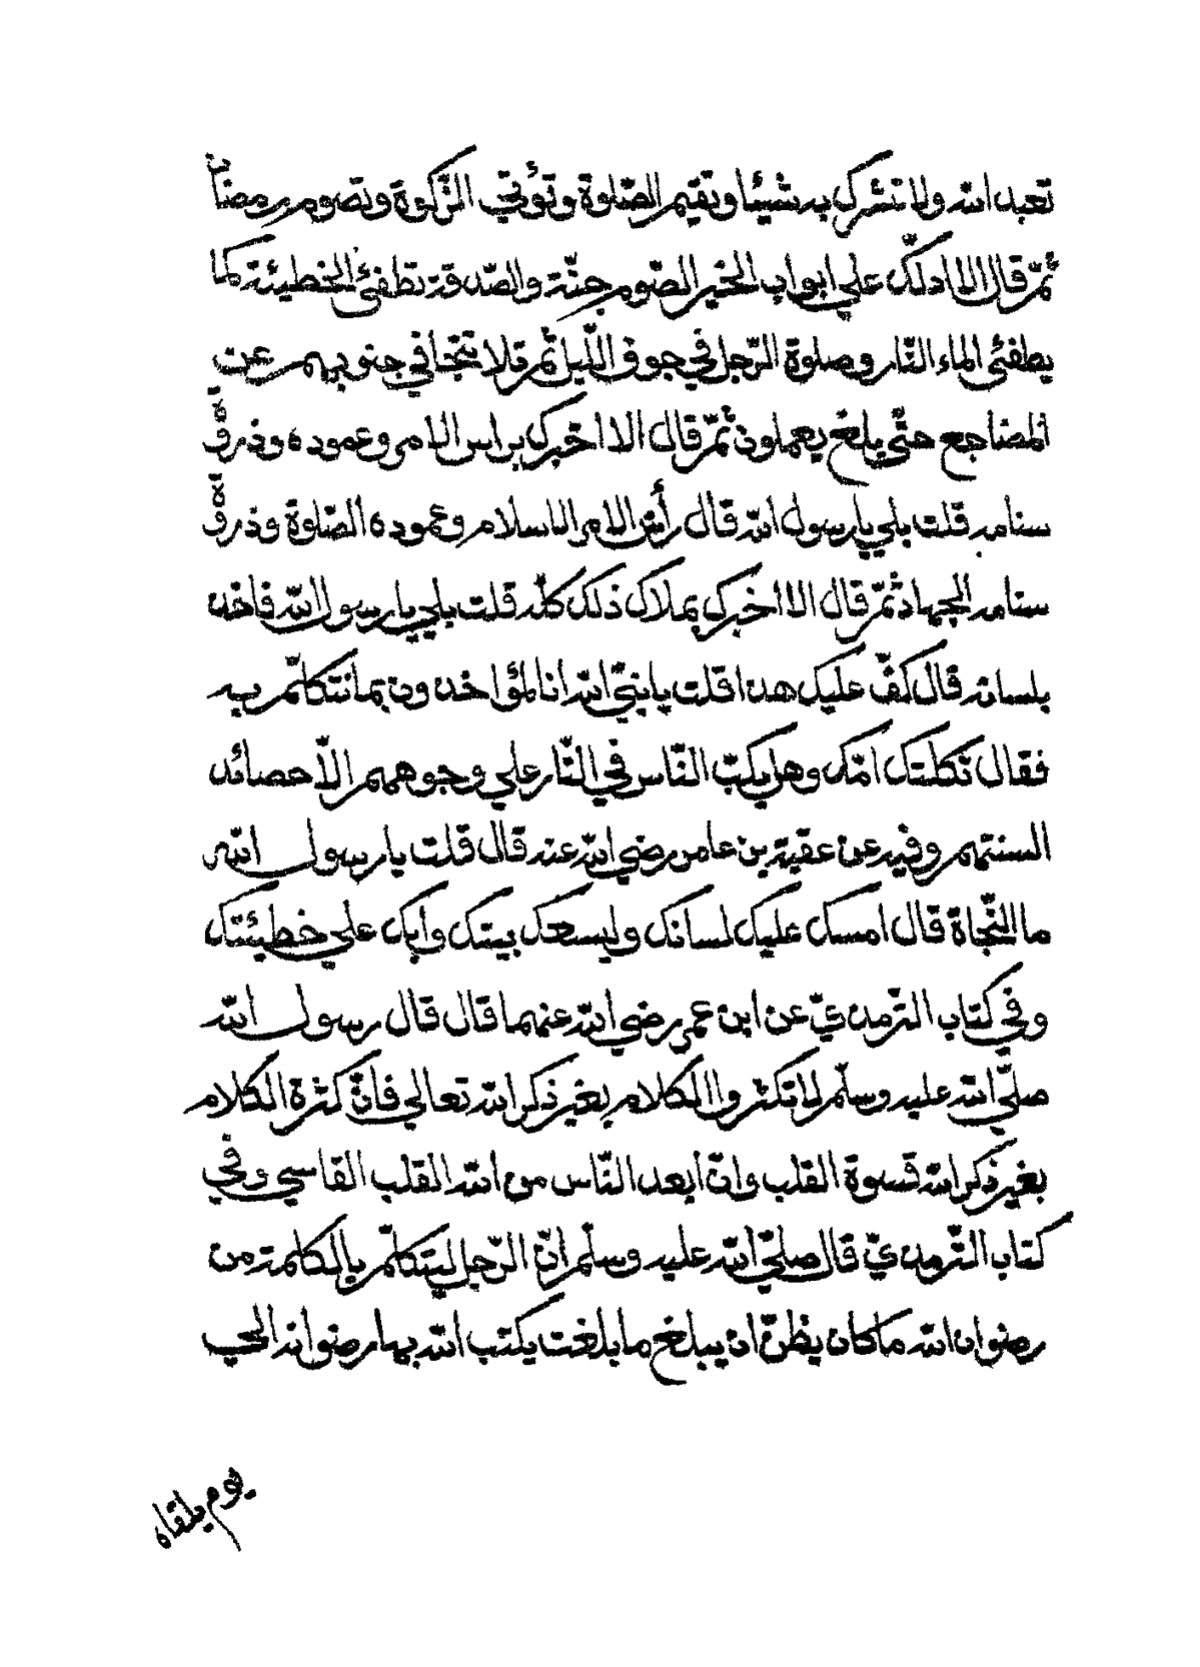 تعبد الله ولا تشرك به شيئا وتقيم الصّلوة وتؤتي الزّكوة وتصوم رمضان
ثمّ قال الا ادلّك علي ابواب الخير الصّوم جنّة والصّدقة تطفئ الخطيئة كما
يطفئ الماء النّار وصلوة الرّجل في جوف اللّيل ثمّ تلا تتجافي جنوبهم عن
المضاجع حتّي بلغ يعملون ثمّ قال الا اخبرك براس الامر وعموده وذروة
سنامه قلت بلي يا رسول الله قال رأس الامر الاسلام وعموده الصّلوة وذروة
سنامه الجهاد ثمّ قال الا اخبرك بملاك ذلك كلّه قلت بلي يا رسول الله فاخذ
بلسانه قال كفّ عليك هذا قلت يا نبيّ الله انا لمؤاخذون بما نتكلّم به
فقال ثكلتك امّك وهل يكبّ النّاس في النّار علي وجوههم الّا حصائد
السنتهم وفيه عن عقبة بن عامر رضي الله عنه قال قلت يا رسول الله
ما النّجاة قال امسك عليك لسانك وليسعك بيتك وابك علي خطيئتك
وفي كتاب الترمذيّ عن ابن عمر رضي الله عنهما قال قال رسول الله
صلّي الله عليه وسلّم لا تكثروا الكلام بغير ذكر الله تعالي فانّ كثرة الكلام
بغير ذكر الله قسوة القلب وانّ ابعد النّاس من الله القلب القاسي وفي
كتاب التّرمذيّ قال صلّي الله عليه وسلّم انّ الرّجل ليتكلّم بالكلمة من
رضوان الله ما كان يظنّ ان يبلغ ما بلغت يكتب الله بها رضوانه الي
يوم يلقاه